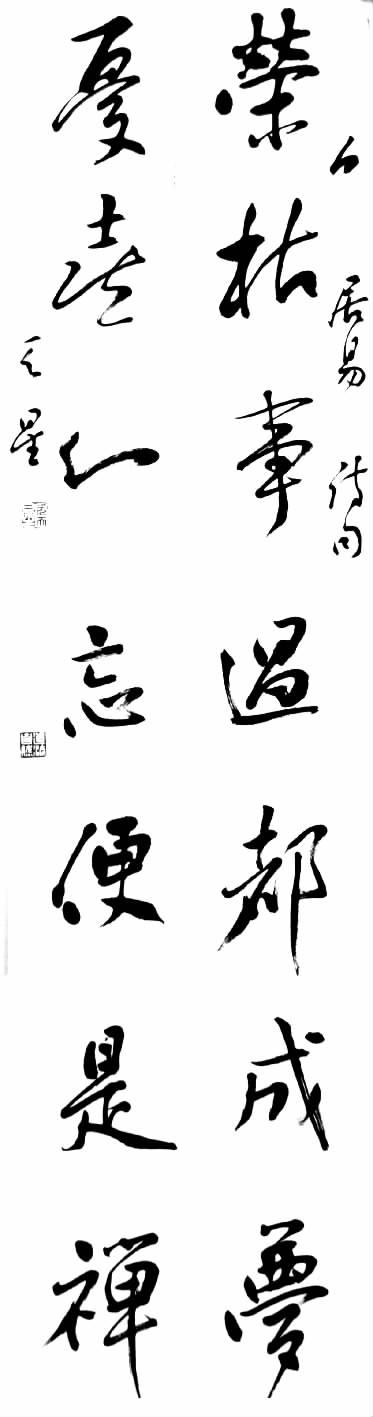 白居易詩句
榮枯事過都成夢
憂喜心忘便是禪
星